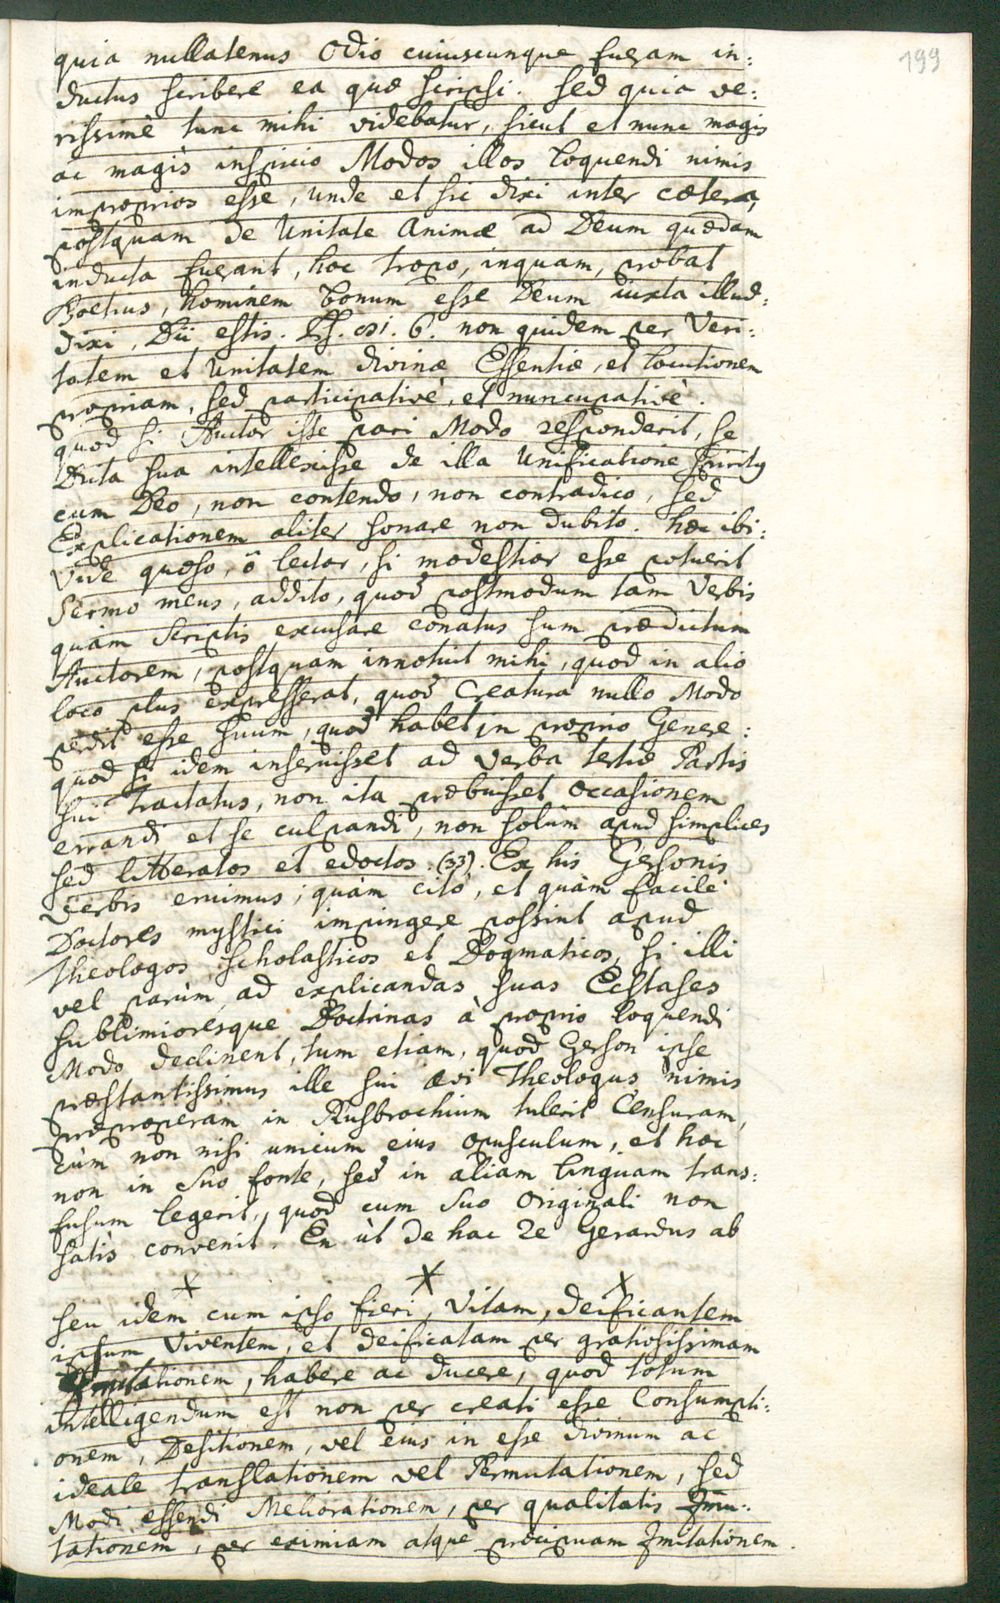 199
quia nullatenus Odio cuiuscunque fueram in:
ductus scribere ea quæ scripsi. sed quia ve:
rissimè tunc mihi videbatur, sicut et nunc magis
ac magis inspicio Modos illos loquendi nimis
improprios esse, unde et sic dixi inter cætera,
postquam de Unitate Animæ ad Deum quædam
inducta fuerant, hoc tropo, inquam, probat
Boetius, hominem bonum esse Deum iuxta illud:
dixi, Dii estis. Ps. 081. 6. non quidem per Veri:
tatem et Unitatem divinæ Essentiæ, et locutionem
propriam, sed participativè, et nuncupativè.
quod si Auctor iste pari Modo responderit, se
Dicta sua intellexisse de illa Unificatione Spiritus
cum Deo, non contendo, non contradico, sed
Explicationem aliter sonare non dubito. hæc ibi:
Vide quæso, ô lector, si modestior esse potuerit
Sermo meus, addito, quod postmodum tam Verbis
quàm Scriptis excusare conatus sum prædictum
Auctorem, postquam innotuit mihi, quod in alio
loco plus expresserat, quod Creatura nullo Modo
perdit esse suum, quod habet in proprio Genere:
quod si idem inseruisset ad Verba tertiæ Partis
sui tractatus, non ita præbuisset occasionem
errandi et se culpandi, non solùm apud simplices
sed litteratos et edoctos. (33). Ex his Gersonis
verbis eruimus; quàm citò, et quàm facilè
Doctores mystici impingere possint apud
Theologos scholasticos et Dogmaticos, si illi
vel parùm ad explicandas suas Ecstases
sublimioresque Doctrinas à proprio loquendi
Modo declinent, tum etiam, quod Gerson ipse
præstantissimus ille sui ævi Theologus nimis
præproperam in Rusbrochium tulerit Censuram,
cùm non nisi unicum eius opusculum, et hoc
non in suo fonte, sed in aliam linguam trans:
fusum legerit, quod cum suo Originali non
satis convenit. En ùt de hac re Gerardus ab
X X X
seu idem cum ipso fieri, Vitam, deificantem
ipsum Viventem, et deificatam per gratiosissimam
habere ac ducere, quod totum
intelligendum est non per creati esse Consumpti:
onem, Desitionem, vel eius in esse divinum ac
ideale translationem vel Permutationem, sed
Modi essendi Meliorationem, per qualitatis Imu:
tationem, per eximiam atque præcipuam Imitationem.